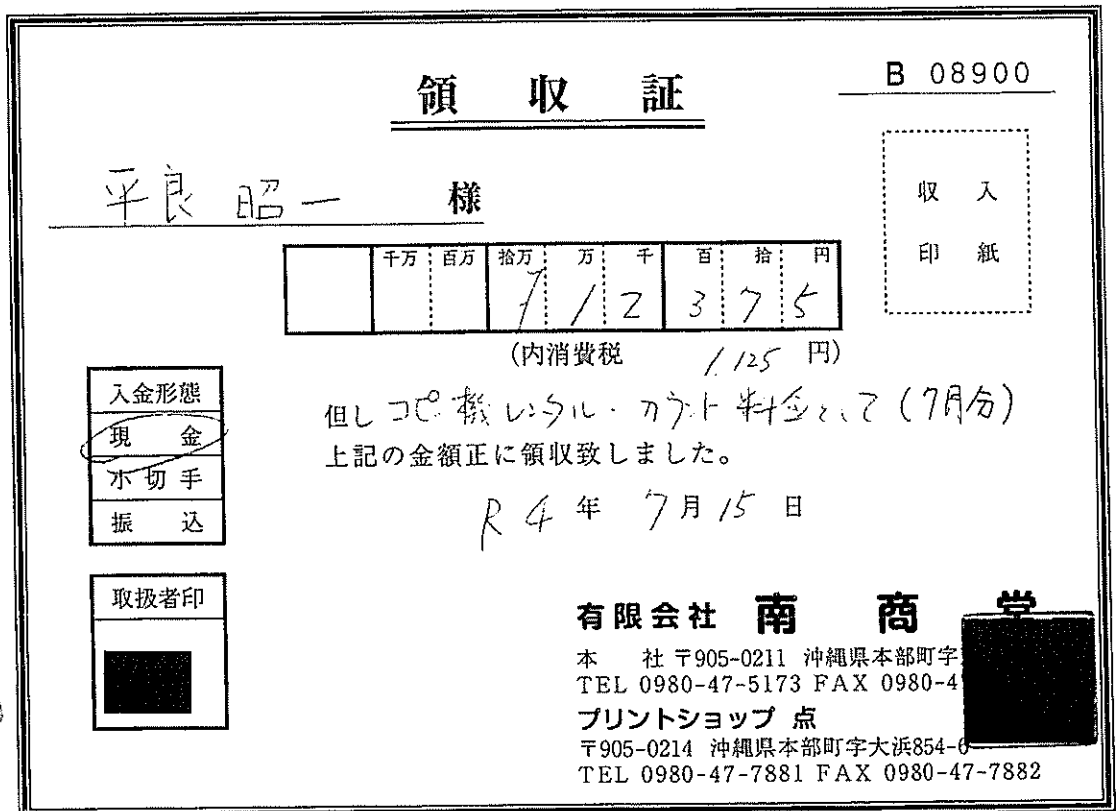 領収証
B 08900
平良 昭一 様
収入
印紙
千万 百万 拾万 万 千 百 拾 円
¥ 1 2 3 7 5
(内消費税 1,125 円)
入金形態
現金
小切手
振込
但し コピー機レンタル・カウント料金として(7月分)
上記の金額正に領収致しました。
R 4 年 7 月 15 日
取扱者印
有限会社 南商堂
本社 〒905-0211 沖縄県本部町字
TEL 0980-47-5173 FAX 0980-4
プリントショップ 点
〒905-0214 沖縄県本部町字大浜854-6
TEL 0980-47-7881 FAX 0980-47-7882